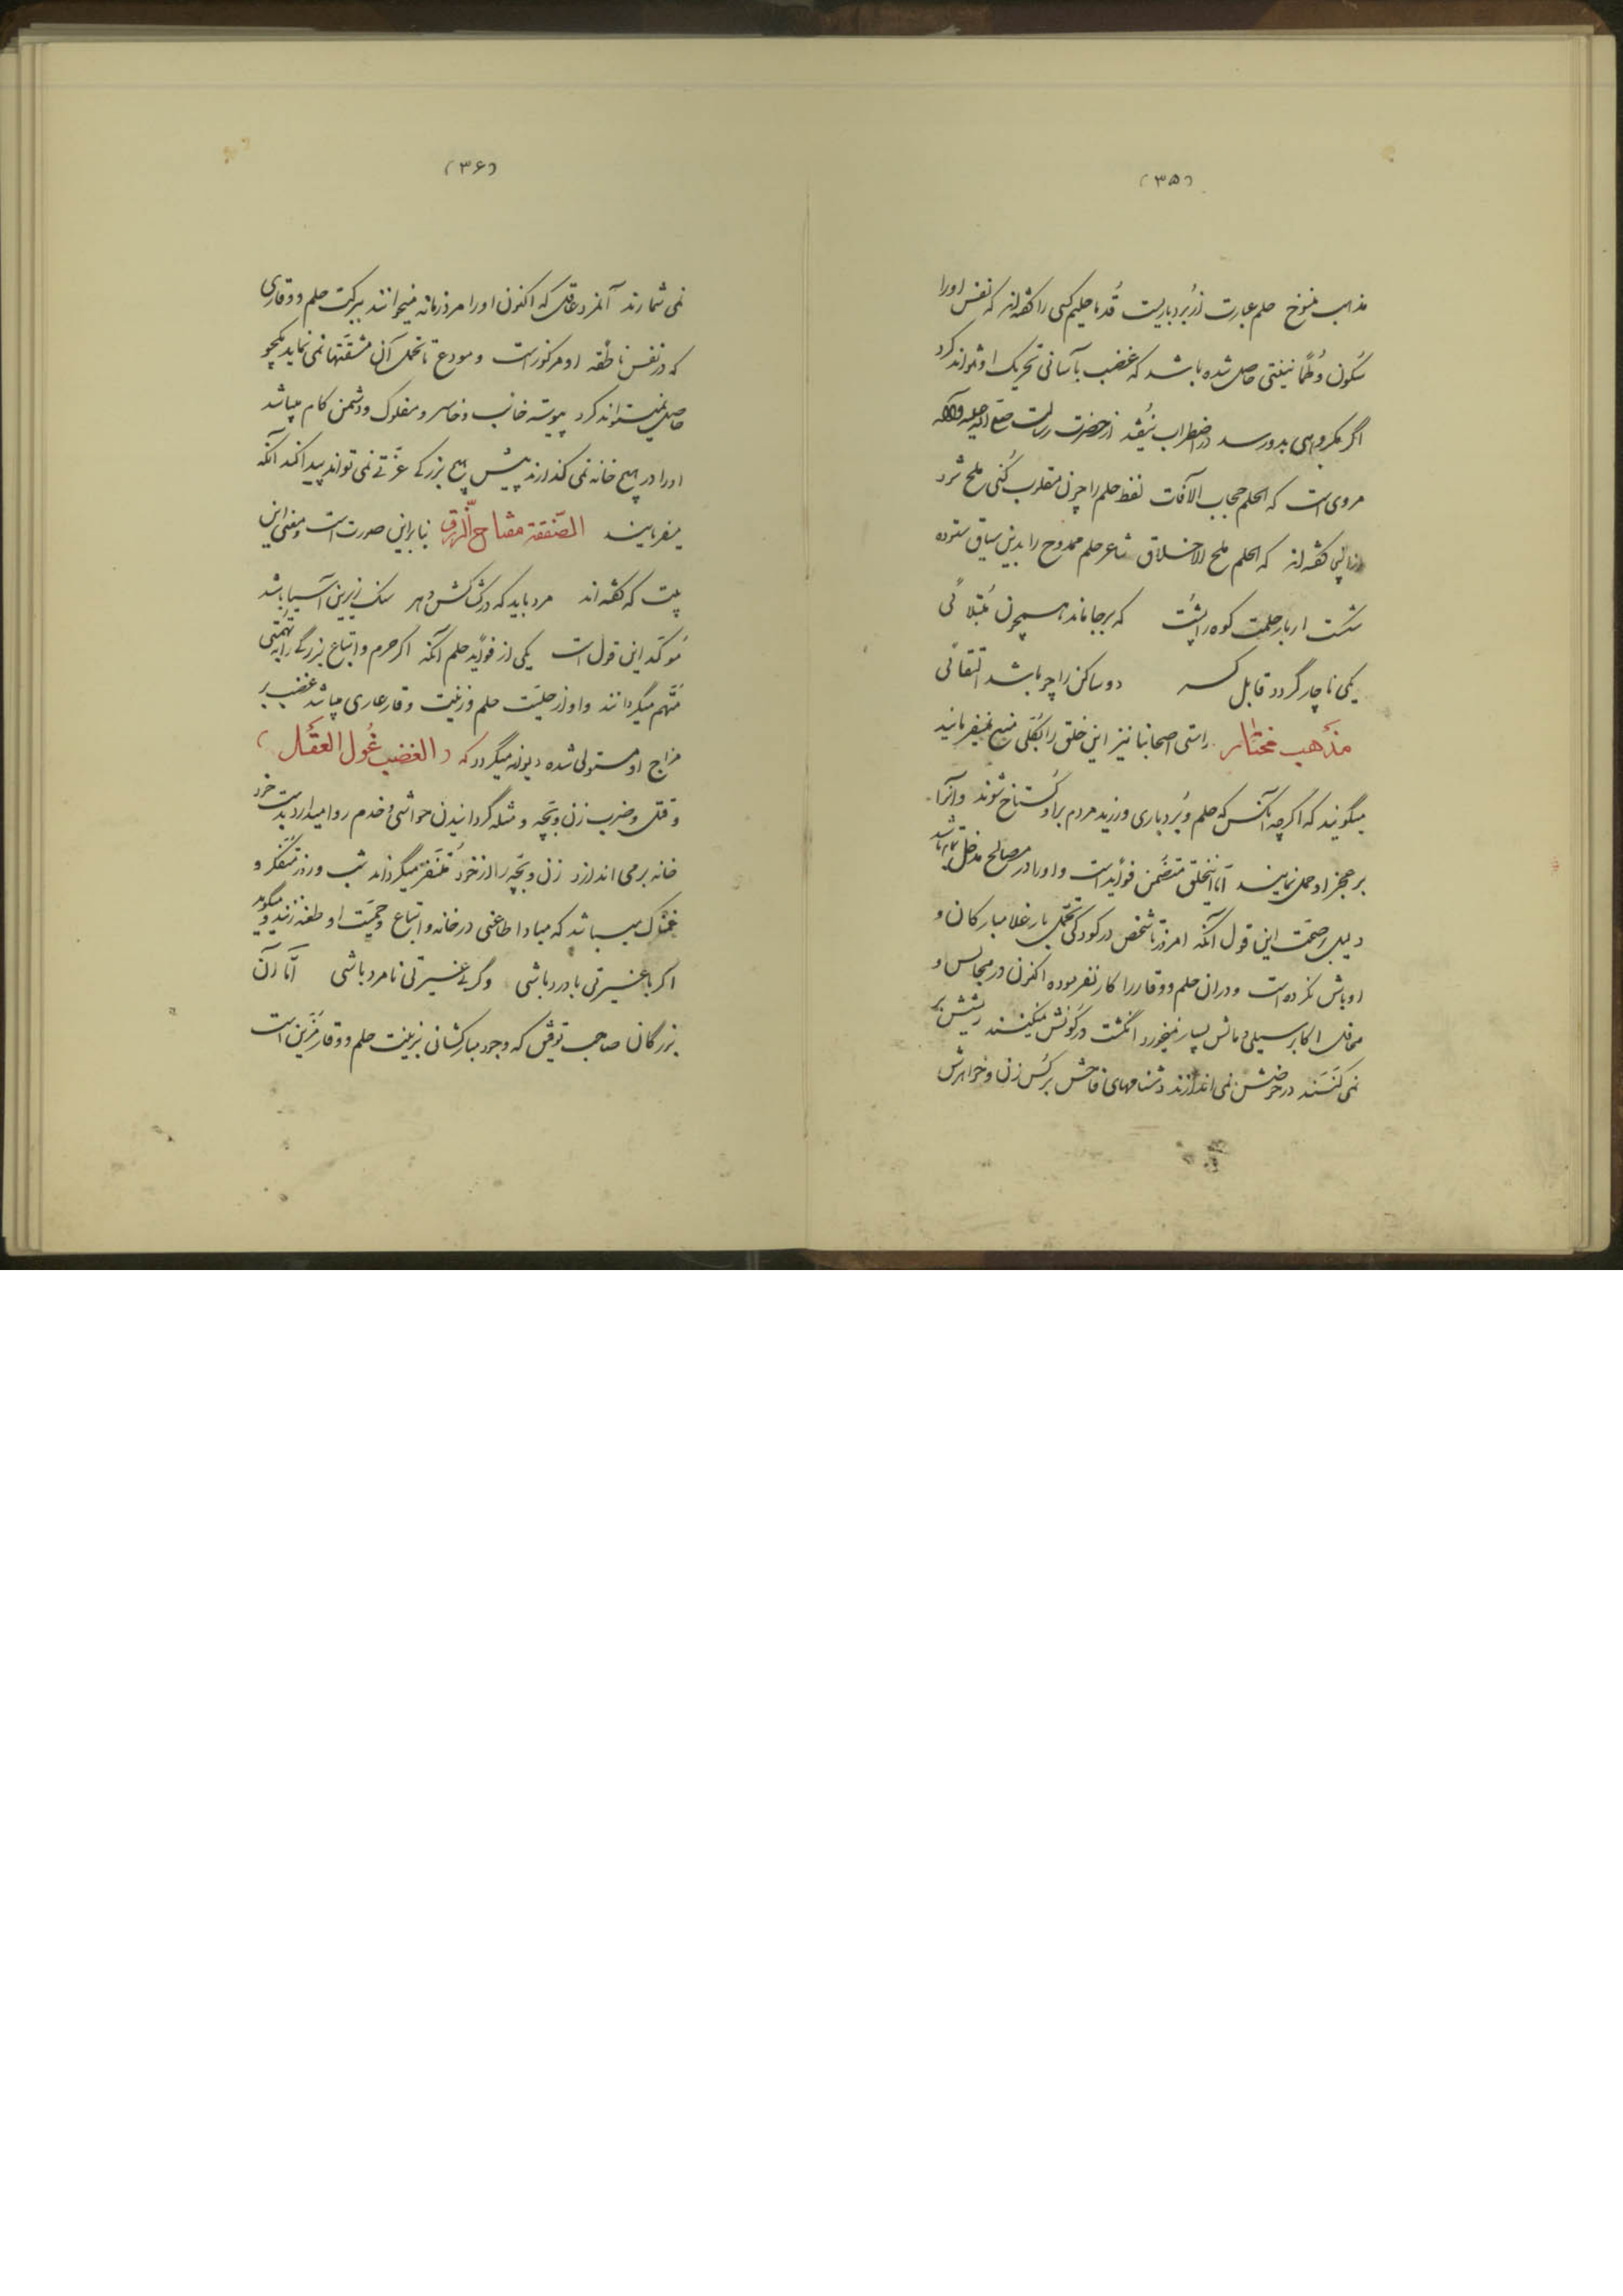 (۳۵)
مذهب منسوخ حلم عبارت از بُردباریست قُدما حلیم کسی را گفته‌اند که نفس او را
سُکون و طُمأنینتی حاصل شده باشد که غضب بآسانی تحریک او نتواند کرد
اگر مکروهی بدو رسد در اضطراب نیُفتد از حضرت رسالت صلی الله علیه وآله
مروی است که الحلم حجاب الآفات لفظ حلم را چون مقلوب کُنی ملح شود
از اینجا گفته‌اند که الحلم ملح الاخلاق شاعر حلم ممدوح را بدین سیاق ستوده
شکست ار بار حلمت کوه را پُشت که برجا ماند همچون مُبتلائی
یکی ناچار گردد قابل کسر دو ساکن را چو باشد التقائی
مذهب مختار راستی اصحابنا نیز این خلق را بکُلّی منع نمیفرمایند
میگویند که اگرچه آنکس که حلم و بُردباری ورزید مردم بر او گُستاخ شوند و آنرا
بر عجز او حمل نمایند امّا اینخلق متضّمن فوائد است و او را در مصالح مدخل تمام باشد
دلیل صحّت این قول آنکه امروز تا شخص در کودکی تحمّل بار غلامبارگان و
اوباش نکرده است و در آن حلم و وقار را کار نفرموده اکنون در مجالس و
محافل اکابر سیلی و مالش بسیار نمیخورد انگشت در کونش نمیکنند ریشش بر
نمی‌کَنند در حوضش نمی‌اندازند دشنامهای فاحش بر کُس زن و خواهرش
(۳۶)
نمی‌شمارند آنمرد عاقل که اکنون او را مرد زمانه میخوانند ببرکت حلم و وقاری
که در نفس ناطقه او مرکوز است و مودع تا تحمل آن مشقّتها نمی‌نماید یکجو
حاصل نمیتواند کرد پیوسته خائب و خاسر و مفلوک و دشمن کام میباشد
او را در هیچ خانه نمی‌گذارند پیش هیچ بزرگی عزّتی نمی‌تواند پیدا کند آنکه
میفرمایند الصّفقة مفتاح الرّزق بنابراین صورت است و معنی این
بیت که گفته‌اند مرد باید که در کشاکش دهر سنگ زیرین آسیا باشد
مُؤکّد این قول است یکی از فواید حلم آنکه اگر حرم و اتباع بزرگی را به تُهمتی
مُتّهم میگردانند و او از حلیَت حلم و زینت وقار عاری میباشد غضب بر
مزاج او مستولی شده دیوانه میگردد که (الغضب غُول العقل)
و قتل و ضرب زن و بچّه و مثله گردانیدن حواشی و خدم روا میدارد بدست خود
خانه برمی‌اندازد زن و بچّه را از خود مُتنفّر میگرداند شب و روز متفّکر و
غمناک میباشد که مبادا طاعنی در خانه و اتباع و حمیّت او طعنه زند و میگوید
اگر باغیرتی با درد باشی وگر بی غیرتی نامرد باشی امّا آن
بزرگان صاحب توفیق که وجود مبارکشان بزینت حلم و وقار مُزیّن است